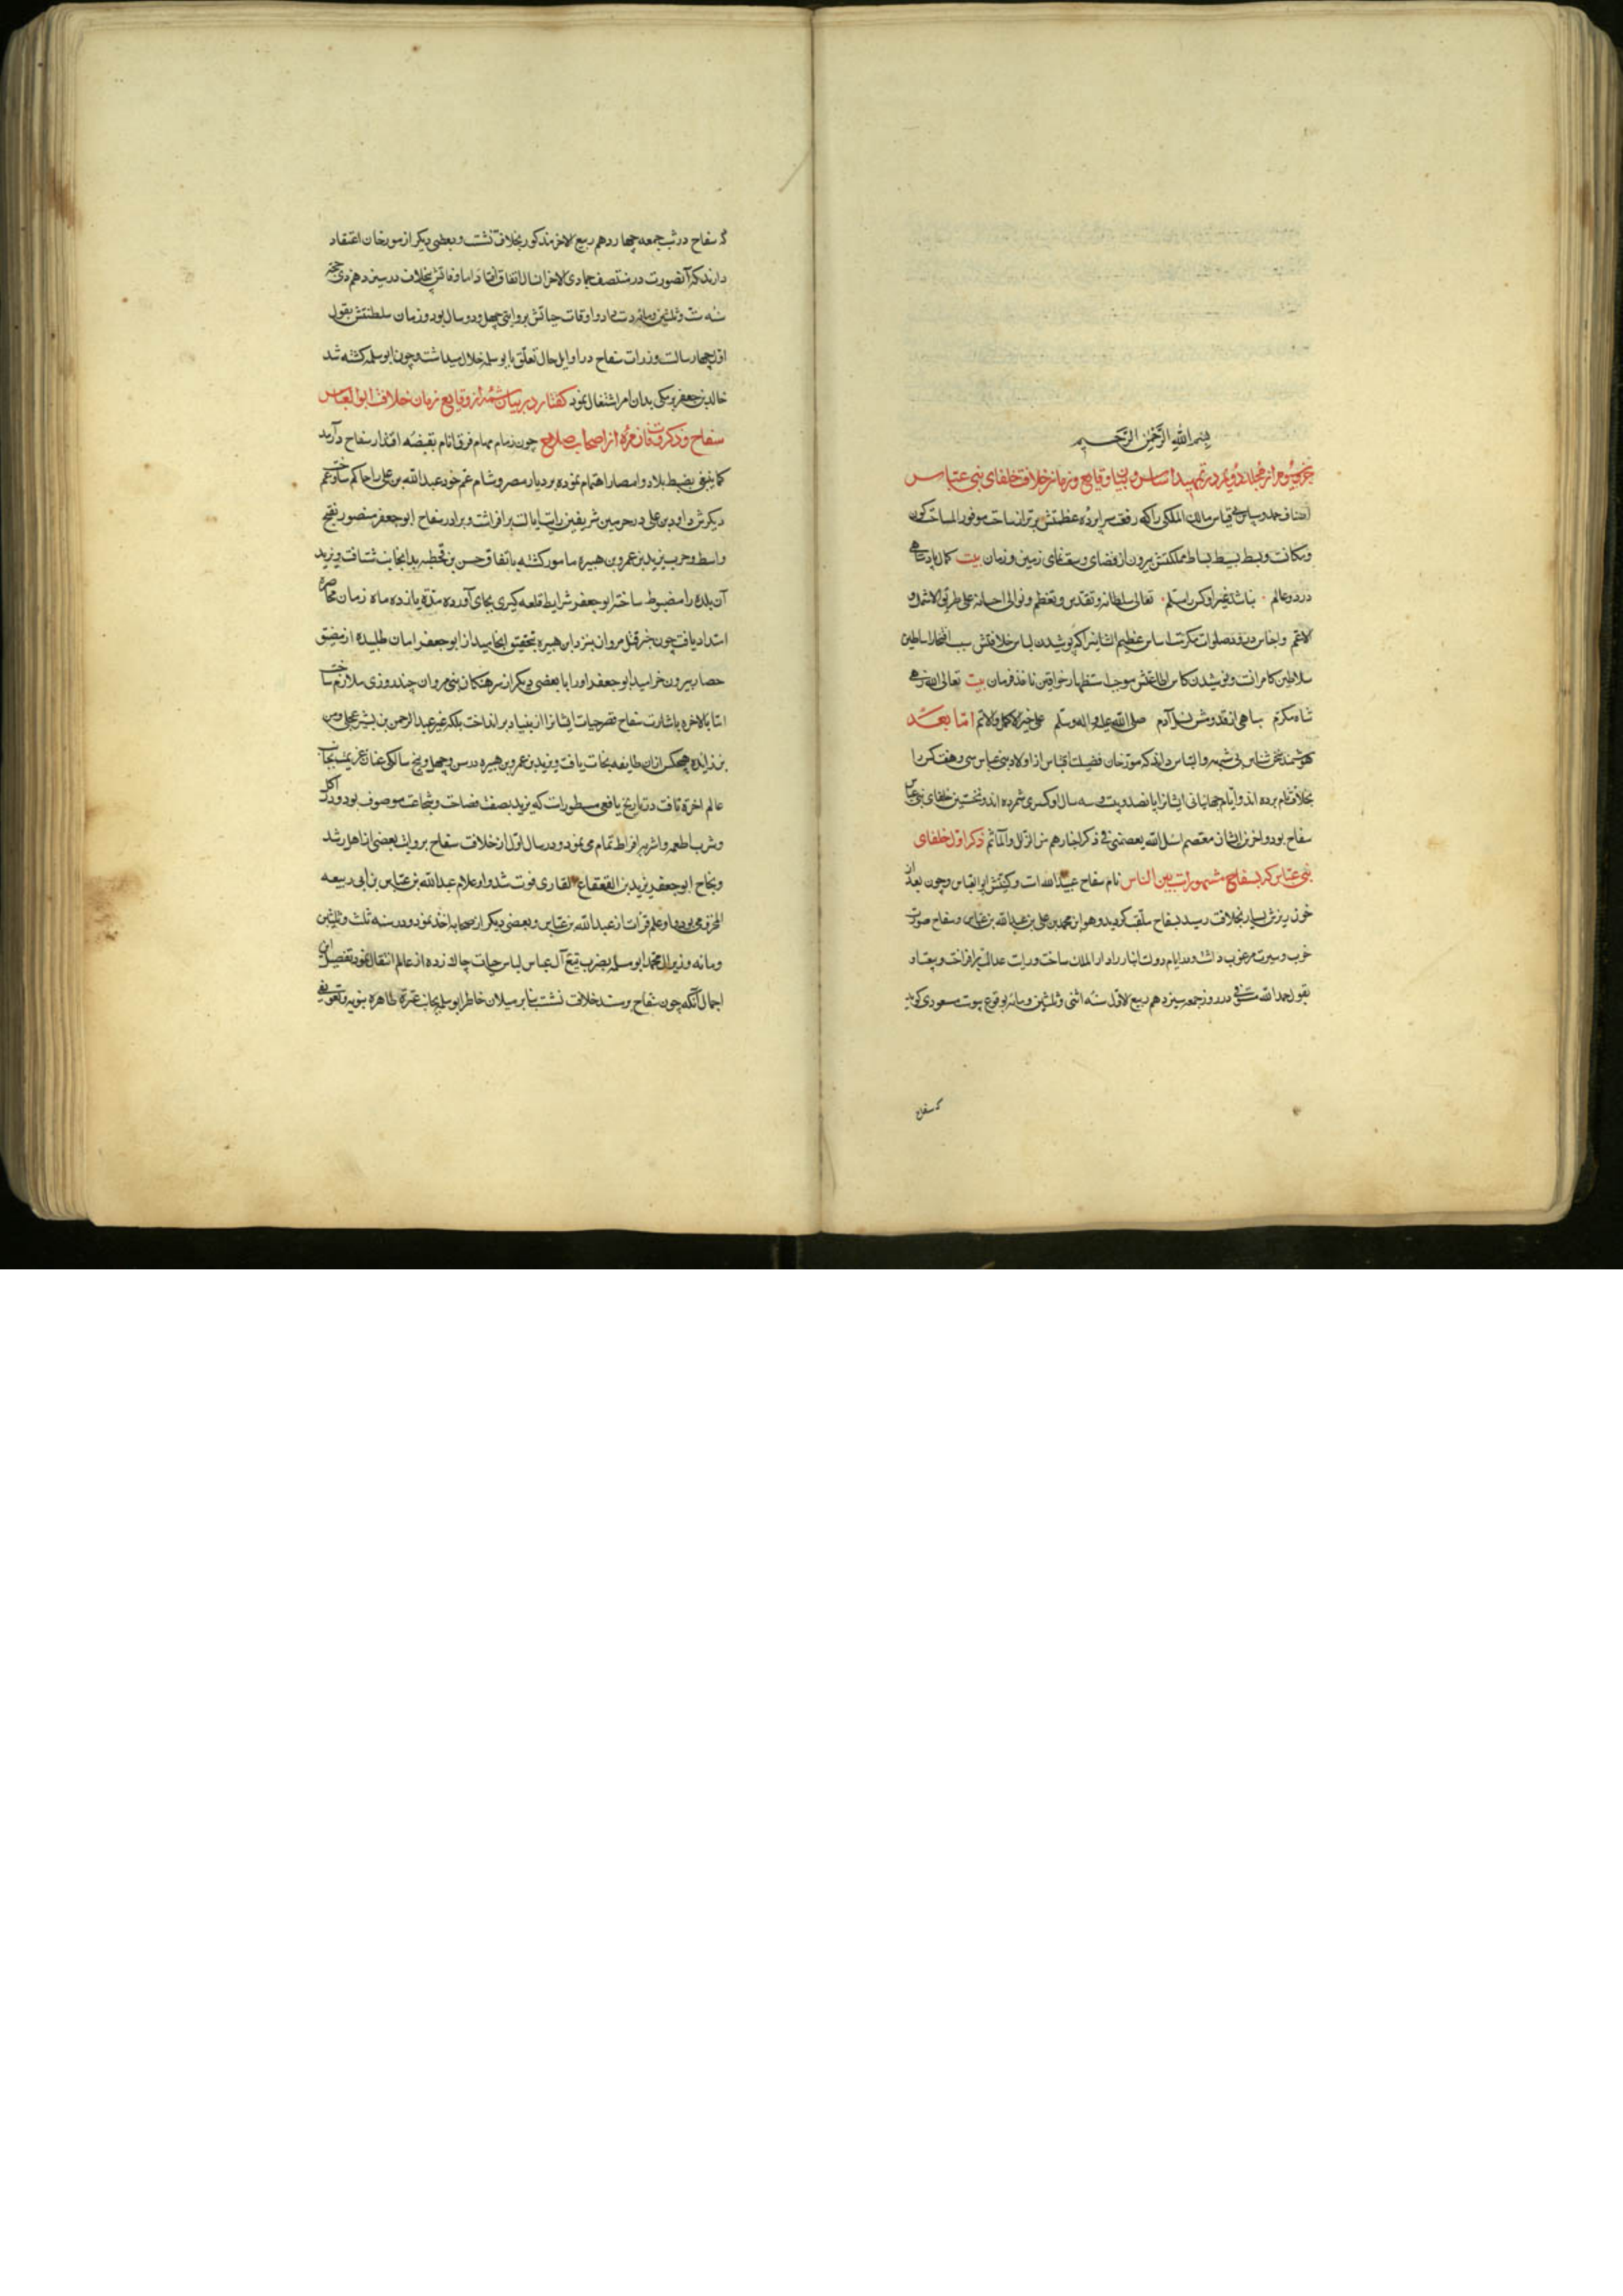 بسم الله الرحمن الرحیم
جزو سیوم از مجلد دویم در تمهید اساس و بیان وقایع و زمان خلافت خلفای بنی عباس
اصناف حمد و سپاس بی قیاس مالک الملکی را که رفعت سراپرده عظمتش برتر از ساحت موفور المساحت کون
و مکانت و بسط بسیط بساط مملکتش بیرون از فضای وسعت‌نمای زمین و زمان بیت کمال پادشاهی
در دو عالم نباشد غیر او کس را مسلم تعالی سلطانه و تقدس و تعظم و توالی احسانه علی طریق الاشمل و
الاعم و اجناس درود و صلوات مکرمت اساس عظیم الشانیرا که پوشیدن لباس خلافتش سبب افتخار اساطین
سلاطین کامرانست و نوشیدن کاس اطاعتش موجب استظهار خواقین نافذ فرمان بیت تعالی الله زهی
شاه مکرم مباهی از قدومش نسل آدم صلی الله علیه و اله و سلم علی خیر الاکمل و الاتم اما بعد
هوشمند سخن شناس بی شبهه و التباس داند که مورخان فضیلت اقتباس از اولاد بنی عباس سی و هفت کس را
بخلافت نام برده اند و ایام جهانبانی ایشانرا پانصد و بیست و سه سال و کسری شمرده اند و نخستین خلفای بنی عباس
سفاح بود و اخرین ایشان معتصم اسئل الله یعصمنی فی ذکر اخبارهم من الزلل و المآثم ذکر اول خلفای
بنی عباس که بسفاح مشهور است بین الناس نام سفاح عبد الله است و کنیتش ابو العباس و چون بعد از
خون ریزش بسیار بخلافت رسید بسفاح ملقب گردید و هو ابن محمد بن علی بن عبد الله بن عباس و سفاح صورت
خوب و سیرت مرغوب داشت و در ایام دولت انبار را دار الملک ساخت و رایت عدالت برافراخت و بیعت او
بقول حمد الله مستوفی در روز جمعه سیزدهم ربیع الاول سنه اثنی و ثلثین و مائه بوقوع پیوست مسعودی گوید
که سفاح
که سفاح در شب جمعه چهاردهم ربیع الاخر مذکور بخلافت نشست و بعضی دیگر از مورخان اعتقاد
دارند که آنصورت در منتصف جمادی الاخر انسال اتفاق افتاد اما وفاتش بخلاف در سیزدهم ذی حجه
سنه ست و ثلثین و مائه دست داد و اوقات حیاتش بروایتی چهل و دو سال بود و زمان سلطنتش بقول
اقل چهار سالست وزرات سفاح در اوایل حال تعلق بابو سلمه خلال میداشت و چون ابو سلمه کشته شد
خالد بن جعفر برمکی بدان امر اشتغال نمود گفتار در بیان شمهٔ از وقایع زمان خلافت ابو العباس
سفاح و ذکر وفات زمرهٔ از اصحاب صلاح چون زمام مهام فرق انام بقبضه اقتدار سفاح درآمد
کما ینبغی بضبط بلاد و امصار اهتمام نموده بر دیار مصر و شام عم خود عبد الله بن علی را حاکم ساخت و عم
دیگرش داود بن علی در حرمین شریفین رایت ایالت برافراشت و برادر سفاح ابو جعفر منصور بفتح
واسط و حرب یزید بن عمرو بن هبیره مامور گشته باتفاق حسن بن قحطبه بدانجانب شتافت و یزید
آن بلده را مضبوط ساخته ابو جعفر شرایط قلعه گیری بجای آورده مدة یازده ماه زمان محاصره
امتداد یافت چون خبر قتل مروان بنزد ابن هبیره بتحقیق انجامید از ابو جعفر امان طلبیده از مضیق
حصار بیرون خرامید ابو جعفر اورا با بعضی دیگر از سرهنگان بنی مروان چند روزی ملازم ساخت
اما بالاخره باشارت سفاح قصر حیات ایشانرا از بنیاد برانداخت بلکه غیر عبد الرحمن بن بشیر عجلی و معن
بن زائده هیچکس ازان طایفه نجات نیافت و یزید بن عمرو بن هبیره در سن چهل و پنج سالگی عنان عزیمت بجانب
عالم اخرة تافت در تاریخ یافعی مسطورات که یزید بصفت فصاحت و شجاعت موصوف بود و در اکل
و شرب اطعمه و اشربه افراط تمام می نمود و در سال اول از خلافت سفاح بروایت بعضی از اهل رشد
و نجاح ابو جعفر یزید بن القعقاع القاری فوت شد و او غلام عبد الله بن عیاش بن ابی ربیعه
المخزومی بود و او علم قرات از عبد الله بن عباس و بعضی دیگر از صحابه اخذ نمود و در سنه ثلث و ثلثین
و مائه وزیر ال محمد ابو سلمه بضرب تیغ آل عباس لباس حیات چاک زده از عالم انتقال نمود تفصیل این
اجمال آنکه چون سفاح بر مسند خلافت نشست بنابر میلان خاطر ابو سلمه بجانب عترة طاهره نبویه و تعویقی